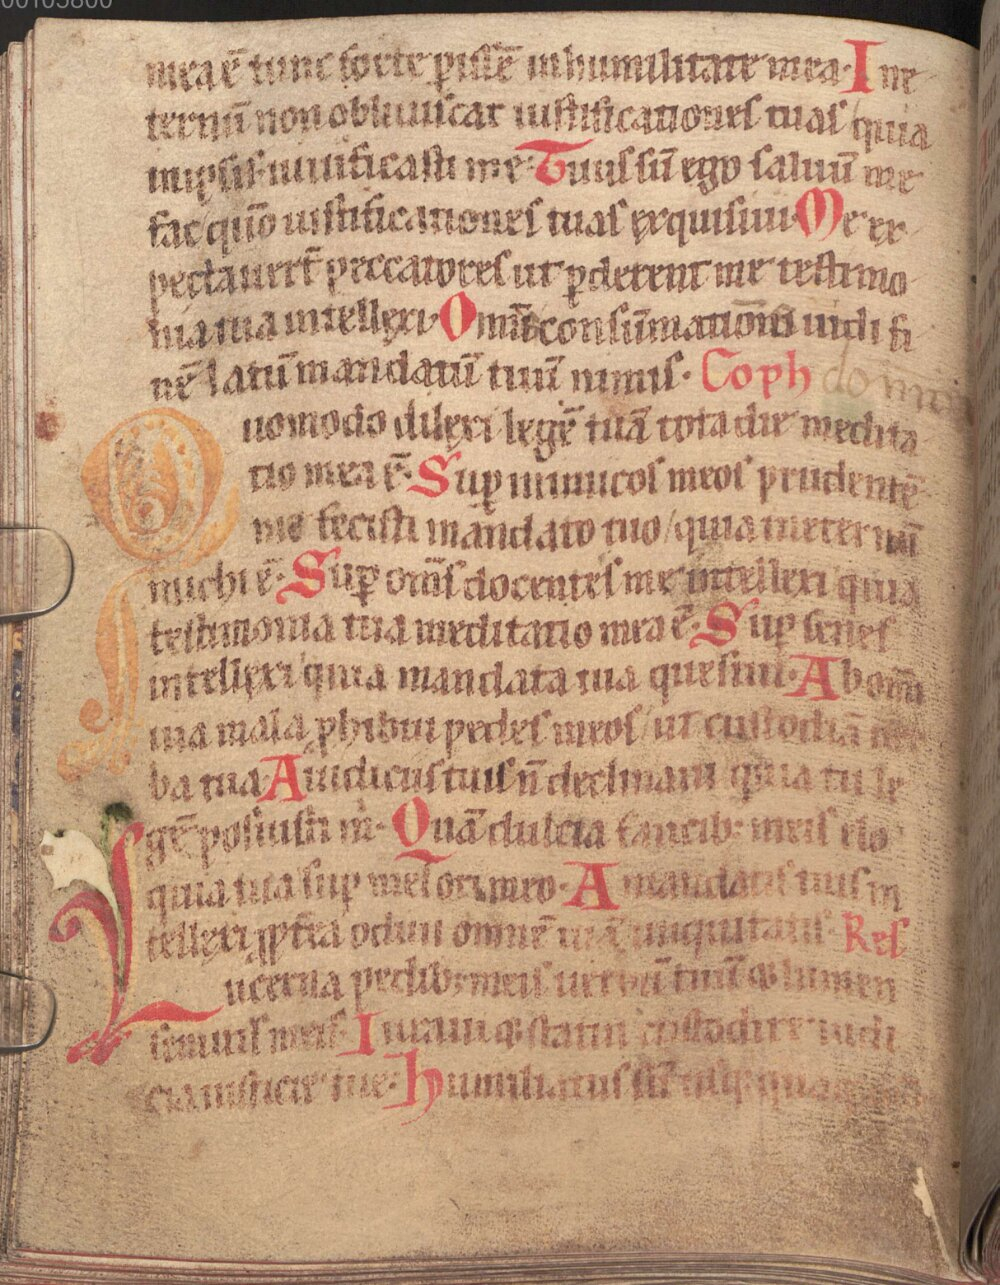 mea ē tunc forte ꝑissē in humilitate mea. In e
ternū non obliuiscar iustificationes tuas / quia
in ipsis uiuificasti me. Tuus sū ego saluū me
fac / quō iustificationes tuas exquisiui. Me ex
pectauert̄ peccatores ut ꝑderent me testimo
nia tua intellexi. Omīs consūmationis uidi fi
nē latū mandatū tuū nimis. Coph
Quomodo dilexi legē tuā tota die medita
tio mea ē. Suꝑ inimicos meos prudentē
me fecisti mandato tuo / quia in eternū
michi ē. Suꝑ om̄s docentes me intellexi quia
testimonia tua meditatio mea ē. Suꝑ senes
intellexi / quia mandata tua quesiui. Ab omī
uia mala ꝓhibui pedes meos / ut custodiā
ba tua. A iudiciis tuis n̄ declinaui quia tu le
gē posuisti m. Quā dulcia faucib; meis elo
quia tua suꝑ mel ori meo. A mandatis tuis in
tellexi ꝓpt̄ea odiui omnē uiā iniquitatis. Res
Lucerna pedib; meis uerbū tuū & lumen
semitis meis. Iuraui & statui custodire iudi
cia iusticie tue. Humiliatus sū usq;